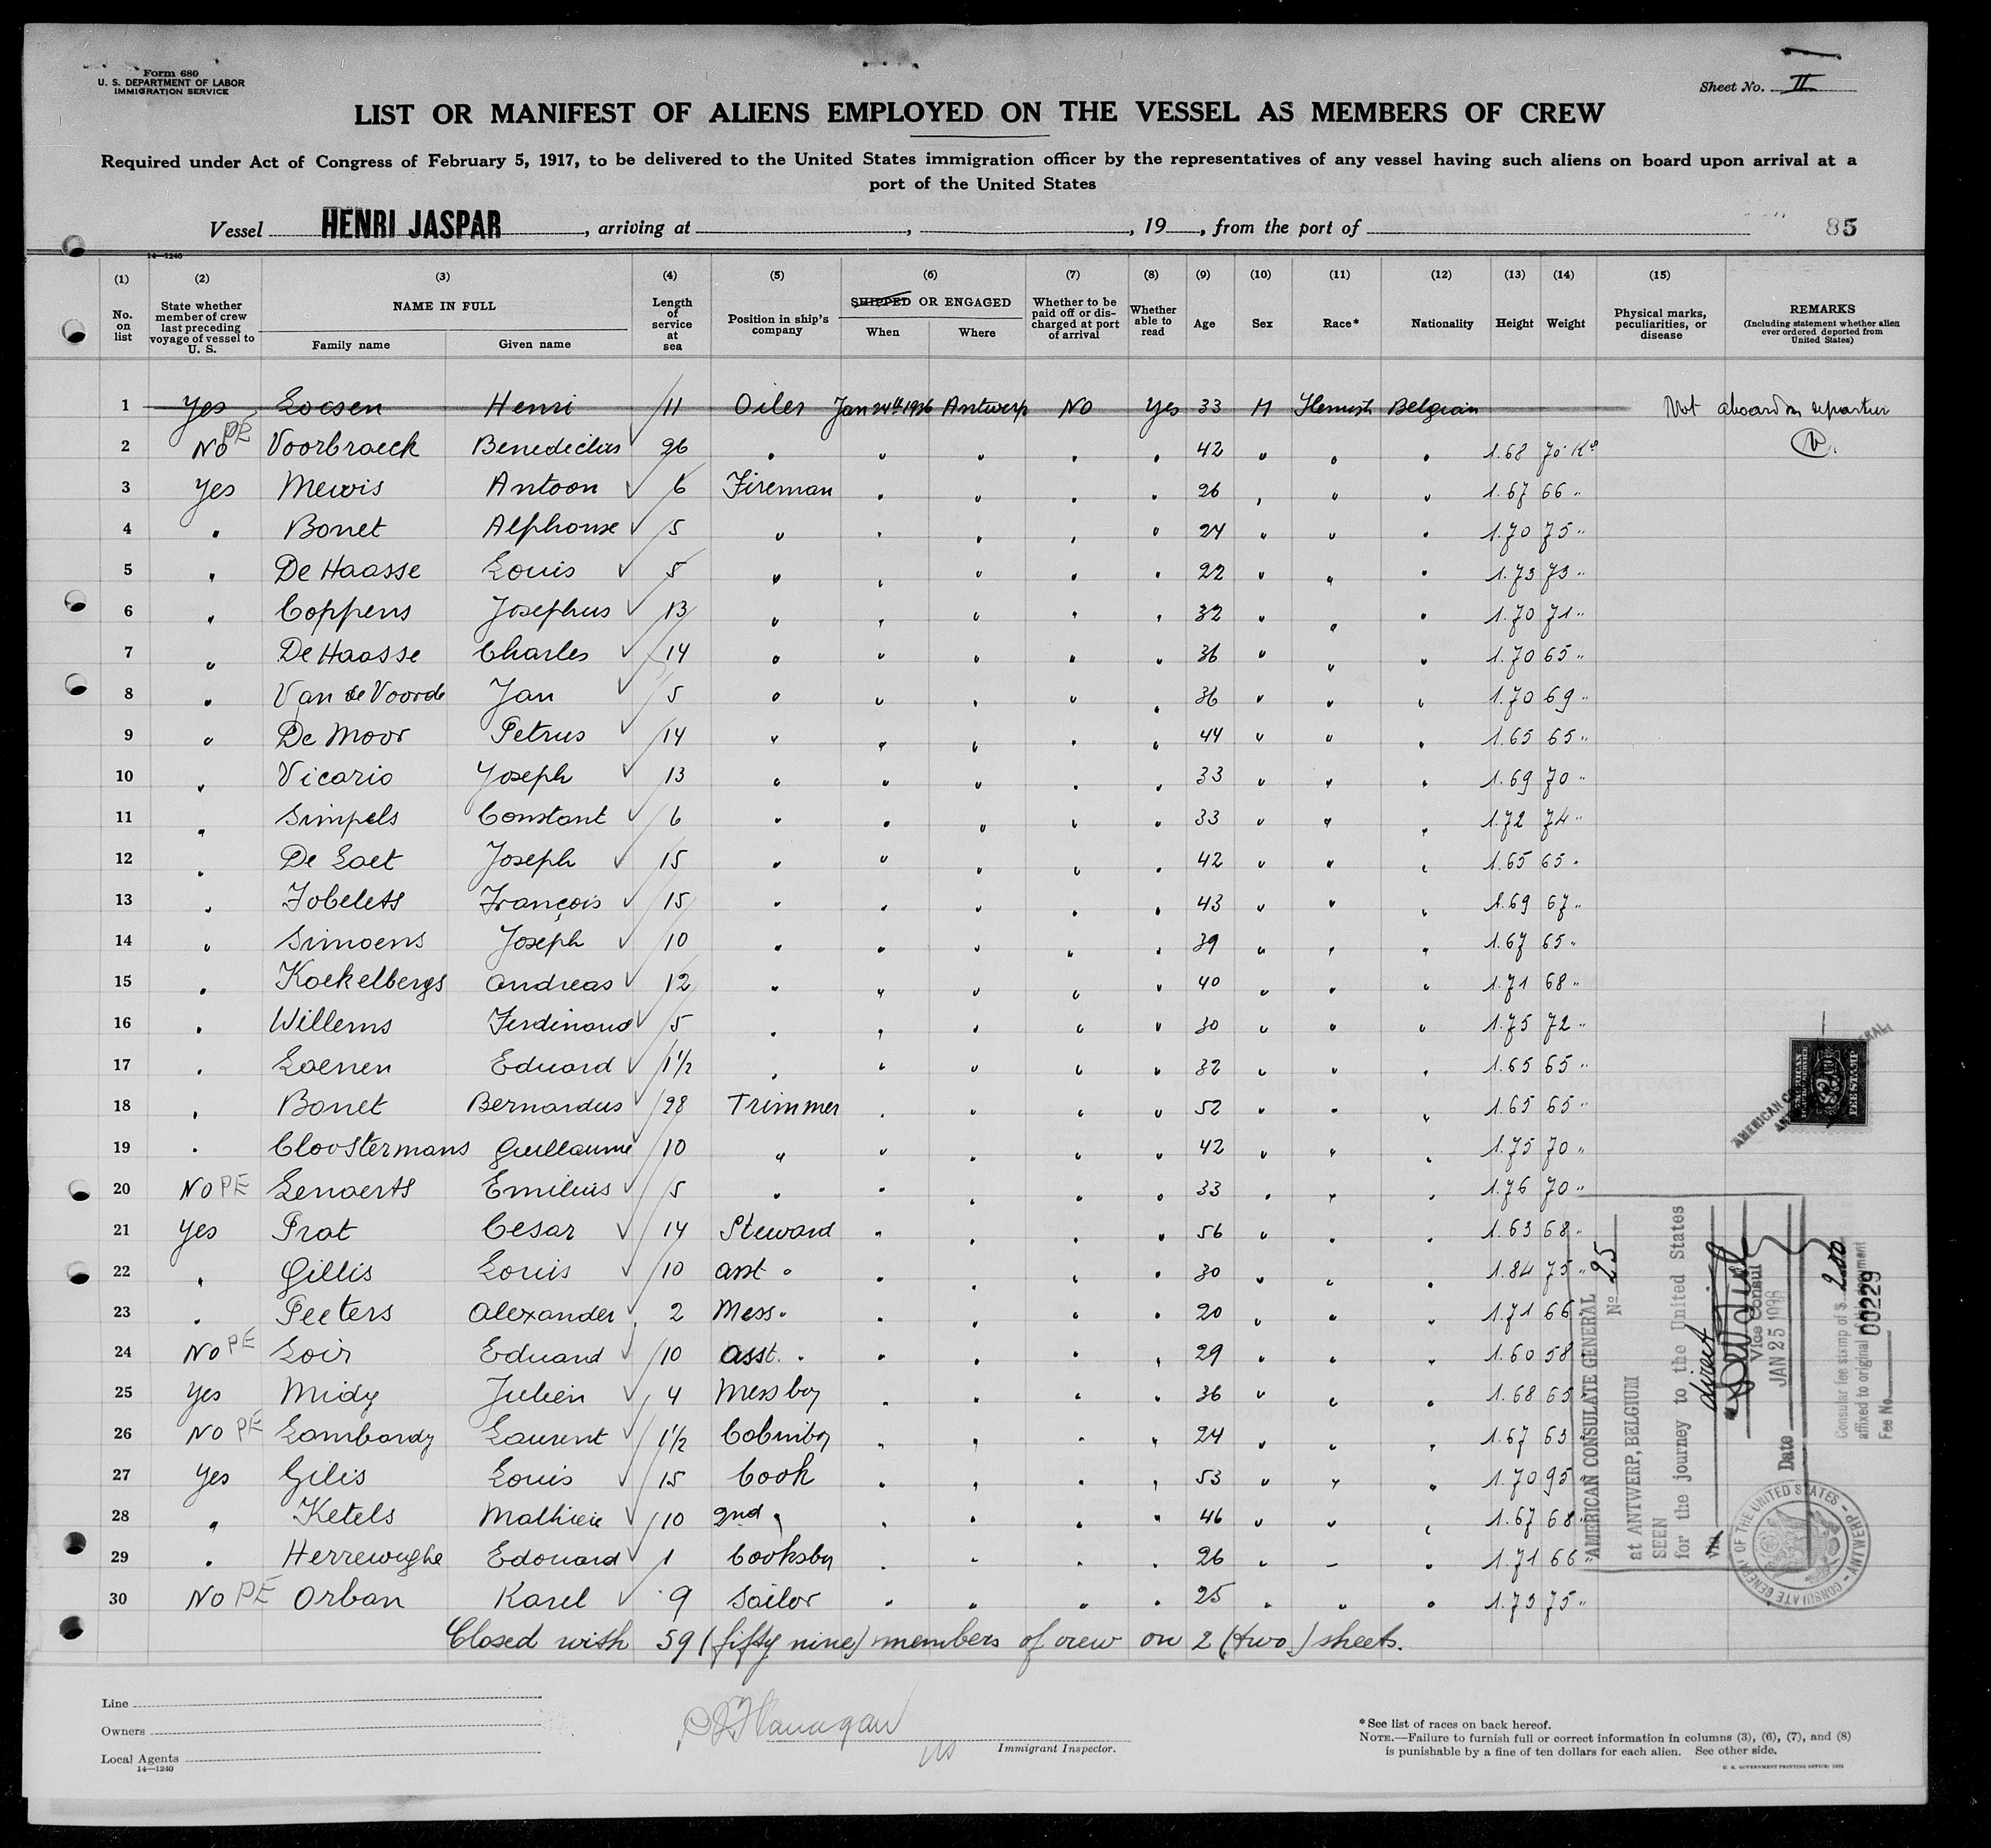 Form 680
U. S. DEPARTMENT OF LABOR
IMMIGRATION SERVICE
Sheet No. II
LIST OR MANIFEST OF ALIENS EMPLOYED ON THE VESSEL AS MEMBERS OF CREW
Required under Act of Congress of February 5, 1917, to be delivered to the United States immigration officer by the representatives of any vessel having such aliens on board upon arrival at a
port of the United States
Vessel HENRI JASPAR, arriving at , , 19 , from the port of
85
14—1240
(1) (2) (3) (4) (5) (6) (7) (8) (9) (10) (11) (12) (13) (14) (15)
No. on list
State whether member of crew last preceding voyage of vessel to U. S.
NAME IN FULL
Family name
Given name
Length of service at sea
Position in ship's company
SHIPPED OR ENGAGED
When
Where
Whether to be paid off or discharged at port of arrival
Whether able to read
Age
Sex
Race*
Nationality
Height
Weight
Physical marks, peculiarities, or disease
REMARKS
(Including statement whether alien ever ordered deported from United States)
1 Yes Henri 11 Oiler Jan 24th 1936 Antwerp No Yes 33 M Flemish Belgian Not aboard on departure
2 No PE Voorbraeck Benedictus 26 " " " " " 42 " " " 1.68 70 Ks
3 Yes Mewis Antoon 6 Fireman " " " " 26 " " " 1.67 66 "
4 " Bonet Alphonse 5 " " " " " 24 " " " 1.70 75 "
5 " De Haasse Louis 5 " " " " " 22 " " " 1.73 73 "
6 " Coppens Josephus 13 " " " " " 32 " " " 1.70 71 "
7 " De Haasse Charles 14 " " " " " 36 " " " 1.70 65 "
8 " Van de Voorde Jan 5 " " " " " 36 " " " 1.70 69 "
9 " De Moor Petrus 14 " " " " " 44 " " " 1.65 65 "
10 " Vicario Joseph 13 " " " " " 33 " " " 1.69 70 "
11 " Simpels Constant 6 " " " " " 33 " " " 1.72 74 "
12 " De Laet Joseph 15 " " " " " 42 " " " 1.65 65 "
13 " Jobelets François 15 " " " " " 43 " " " 1.69 67 "
14 " Simoens Joseph 10 " " " " " 39 " " " 1.67 65 "
15 " Koekelbergs Andreas 12 " " " " " 40 " " " 1.71 68 "
16 " Willems Ferdinand 5 " " " " " 30 " " " 1.75 72 "
17 " Loenen Eduard 1½ " " " " " 32 " " " 1.65 65 "
18 " Bonet Bernardus 28 Trimmer " " " " 52 " " " 1.65 65 "
19 " Cloostermans Guillaume 10 " " " " " 42 " " " 1.75 70 "
20 No PE Lenaerts Emilius 5 " " " " " 33 " " " 1.76 70 "
21 Yes Prat Cesar 14 Steward " " " " 56 " " " 1.63 68 "
22 " Gillis Louis 10 asst " " " " " 30 " " " 1.84 75 "
23 " Peeters Alexander 2 Mess " " " " " 20 " " " 1.71 66 "
24 No PE Loir Eduard 10 asst. " " " " " 29 " " " 1.60 58
25 Yes Midy Julien 4 Messboy " " " " 36 " " " 1.68 65
26 No PE Lambardy Laurent 1½ Cabinboy " " " " 24 " " " 1.67 63
27 Yes Gilis Louis 15 Cook " " " " 53 " " " 1.70 95 "
28 " Ketels Mathieu 10 2nd " " " " " 46 " " " 1.67 68 "
29 " Herreweghe Edouard 1 Cooksboy " " " " 26 " – " 1.71 66 "
30 No PE Orban Karel 9 Sailor " " " " 25 " " " 1.73 75 "
Closed with 59 (fifty nine) members of crew on 2 (two) sheets.
AMERICAN CONSULATE GENERAL
at ANTWERP, BELGIUM
No 25
SEEN
for the journey to the United States
via direct
Vice Consul
Date JAN 25 1936
Consular fee stamp of $ 2.00
affixed to original document
Fee No. 00229
CONSULATE GENERAL OF THE UNITED STATES - ANTWERP
AMERICAN
FEE STAMP
Line
Owners
Local Agents
14—1240
Flanagan
Immigrant Inspector.
*See list of races on back hereof.
NOTE.—Failure to furnish full or correct information in columns (3), (6), (7), and (8)
is punishable by a fine of ten dollars for each alien. See other side.
U. S. GOVERNMENT PRINTING OFFICE